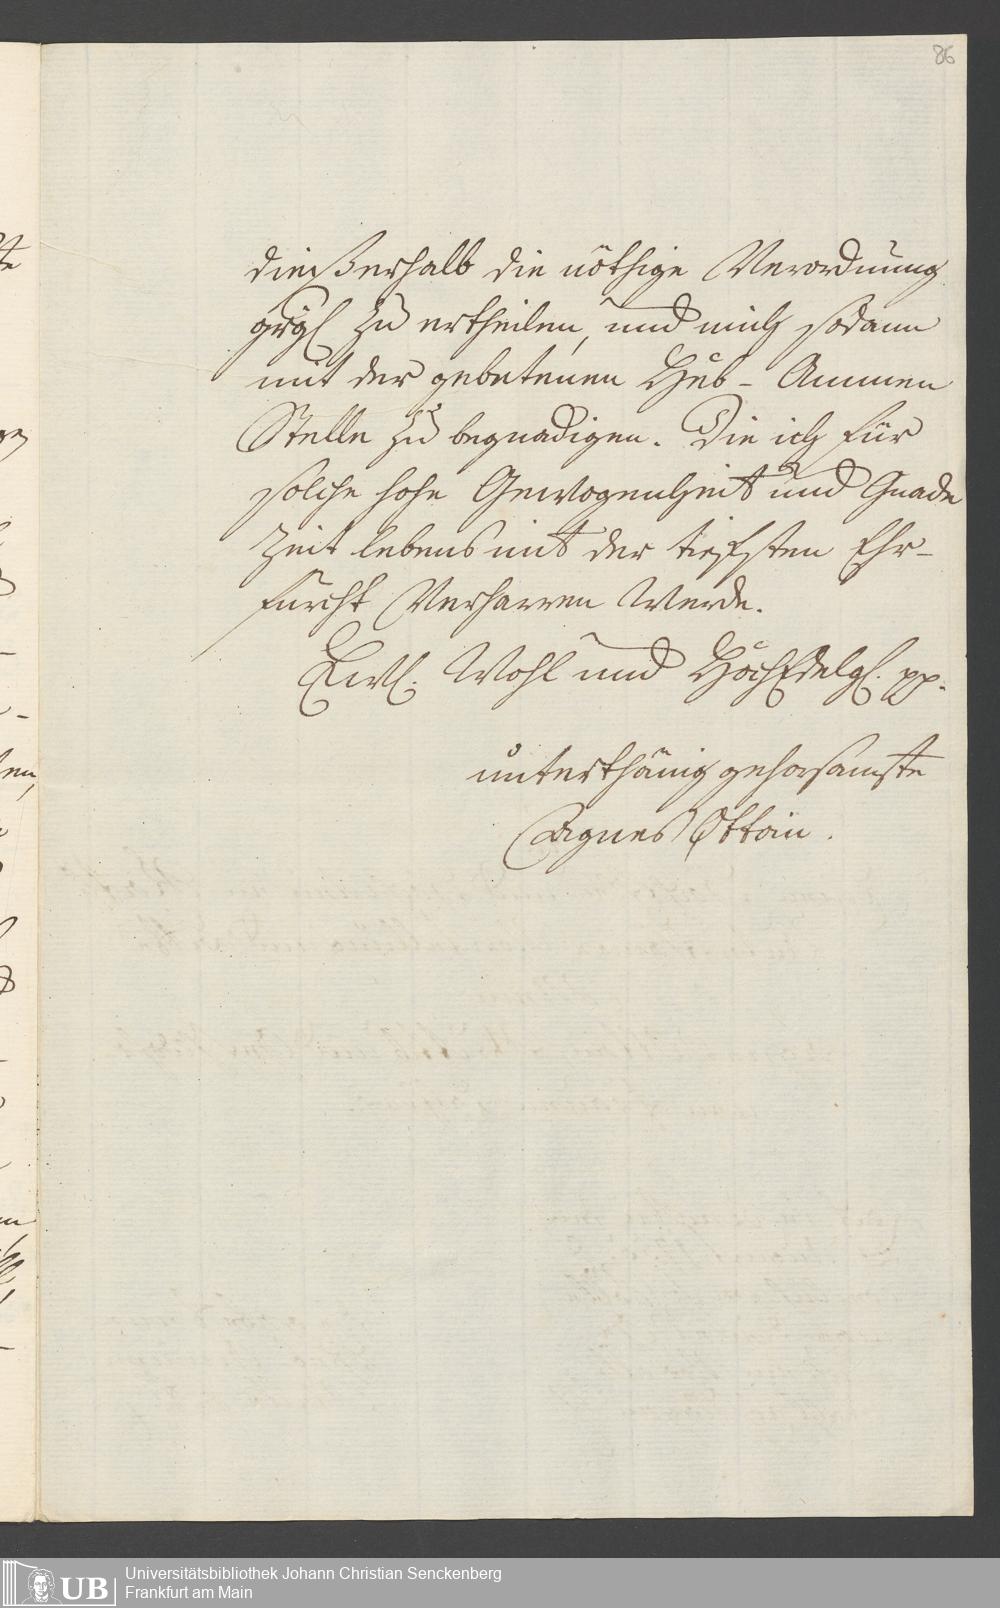 86
dießerhalb die nöthige Verordnung
grgl zu ertheilen, und mich sodann
mit der gebetenen Heb-Ammen
Stelle zu begnadigen. Die ich für
solche hohe Gewogenheit und Gnade
Zeit lebens mit der tiefsten Ehr-
furcht Verharren Werde.
Ewl. Wohl und HochEdelgl. pp.
unterthänig gehorsamste
Agnes Ottoin.
UB
Universitätsbibliothek Johann Christian Senckenberg
Frankfurt am Main